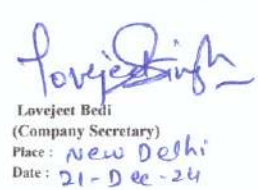 Lovejeet Singh
Lovejeet Bedi
(Company Secretary)
Place : New Delhi
Date : 21-Dec-24